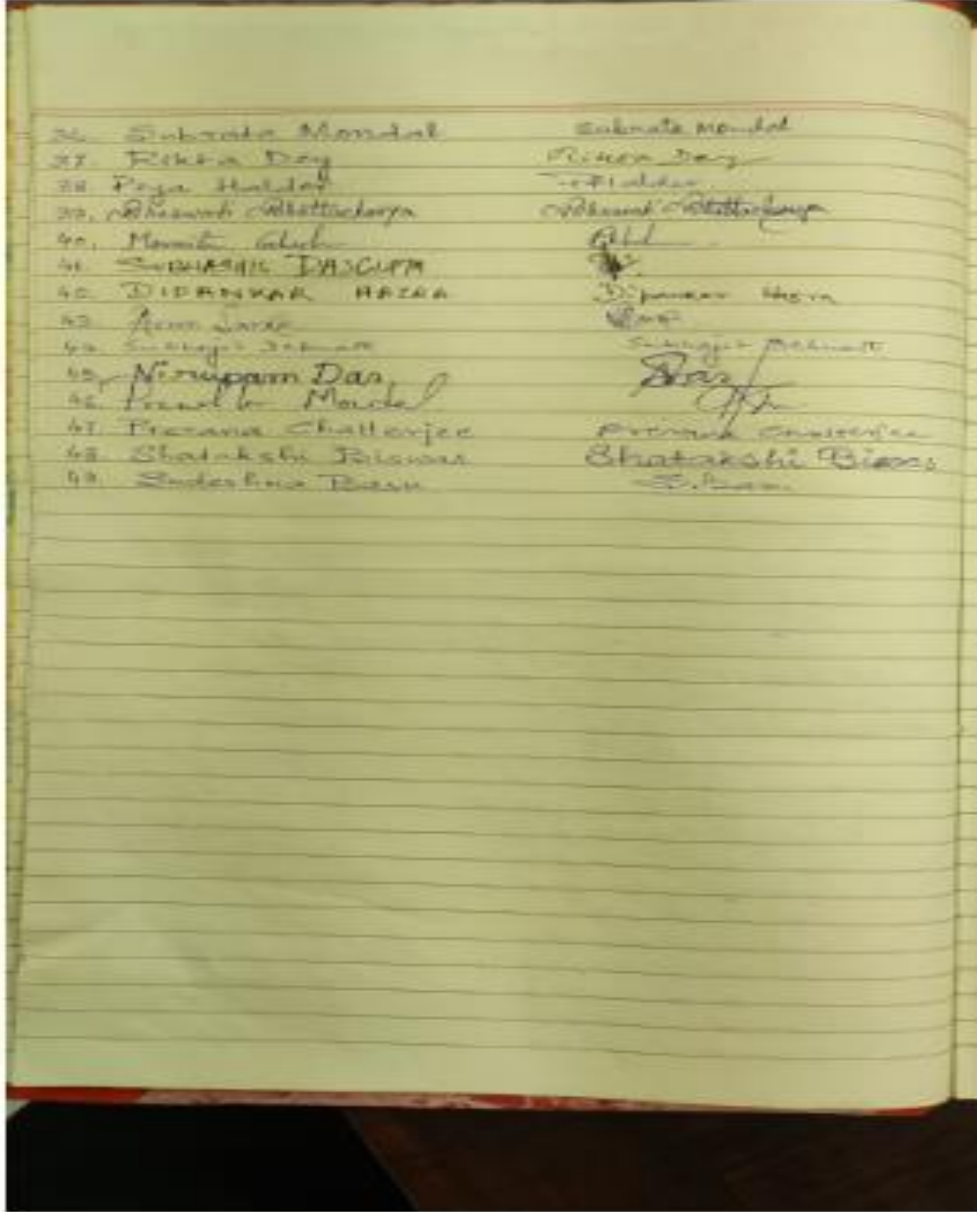 36. Subrata Mondal Subrata Mondal
37. Rikta Dey Rikta Dey
38 Puja Halder P Halder
39. Bhaswati Bhattacharya Bhaswati Bhattacharya
40. Moumita Ghosh
41. SUBHASHIS DASGUPTA
42. DIPANKAR HAZRA Dipankar Hazra
43.
44. Subhajit Debnath Subhajit Debnath
45. Nirupam Das Das
46. Mondal
47. Prerana Chatterjee Prerana Chatterjee
48 Shatakshi Biswas Shatakshi Biswas
49. Sudeshna Basu S. Basu